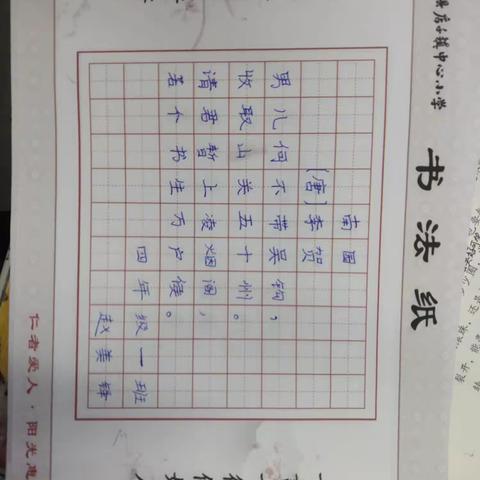 店子镇中心小学
书法纸
南园
[唐]李贺
男儿何不带吴钩，
收取山关五十州。
请君暂上凌烟阁，
若个书生万户侯。
四年级一班
赵美
仁者爱人·阳光